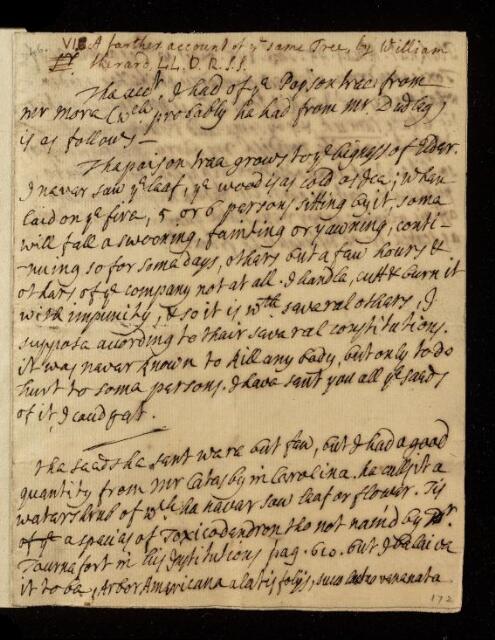 VII. A farther account of yᵉ same Tree, by William
Sherard LL.D. R.S.S.
The accᵗ. I had of yᵉ Poyson tree from
mr More (wᶜʰ probably he had from Mr Dudley)
is as follows –
The poison tree grows to yᵉ bigness of Elder.
I never saw yᵉ leaf, yᵉ wood is as cold as Ice; when
laid on yᵉ fire, 5 or 6 persons sitting by it, some
will fall a swooning, fainting or yawning, conti-
nuing so for some days, others but a few hours &
others of yᵉ company not at all. I handle, cutt & burn it
with impunity, & so it is wᵗʰ several others, I
suppose according to their several constitutions.
it was never known to kill any body, but only to do
hurt to some persons. I have sent you all yᵉ seeds
of it I coud get.
the seeds he sent were but few, but I had a good
quantity from Mr Catesby in Carolina. he calls it a
water shrub of wᶜʰ he never saw leaf or flower. Tis
of yᵉ a species of Toxicodendron tho not nam'd by Dʳ.
Tournefort in his Institutions pag. 610. but I beleive
it to be, Arbor Americana alatis folijs, succo lacteo venenata
172